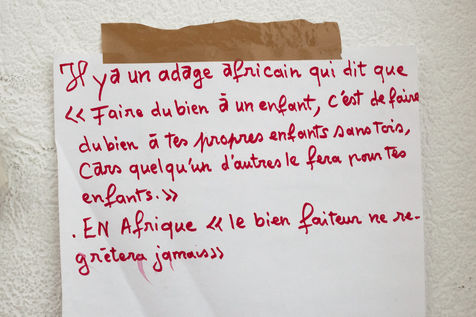 Il y a un adage africain qui dit que
« Faire du bien à un enfant, c'est de faire
du bien à tes propres enfants sans tois,
Cars quelqu'un d'autres le fera pour tes
enfants. »
. EN Afrique « le bien faiteur ne re-
grètera jamais »